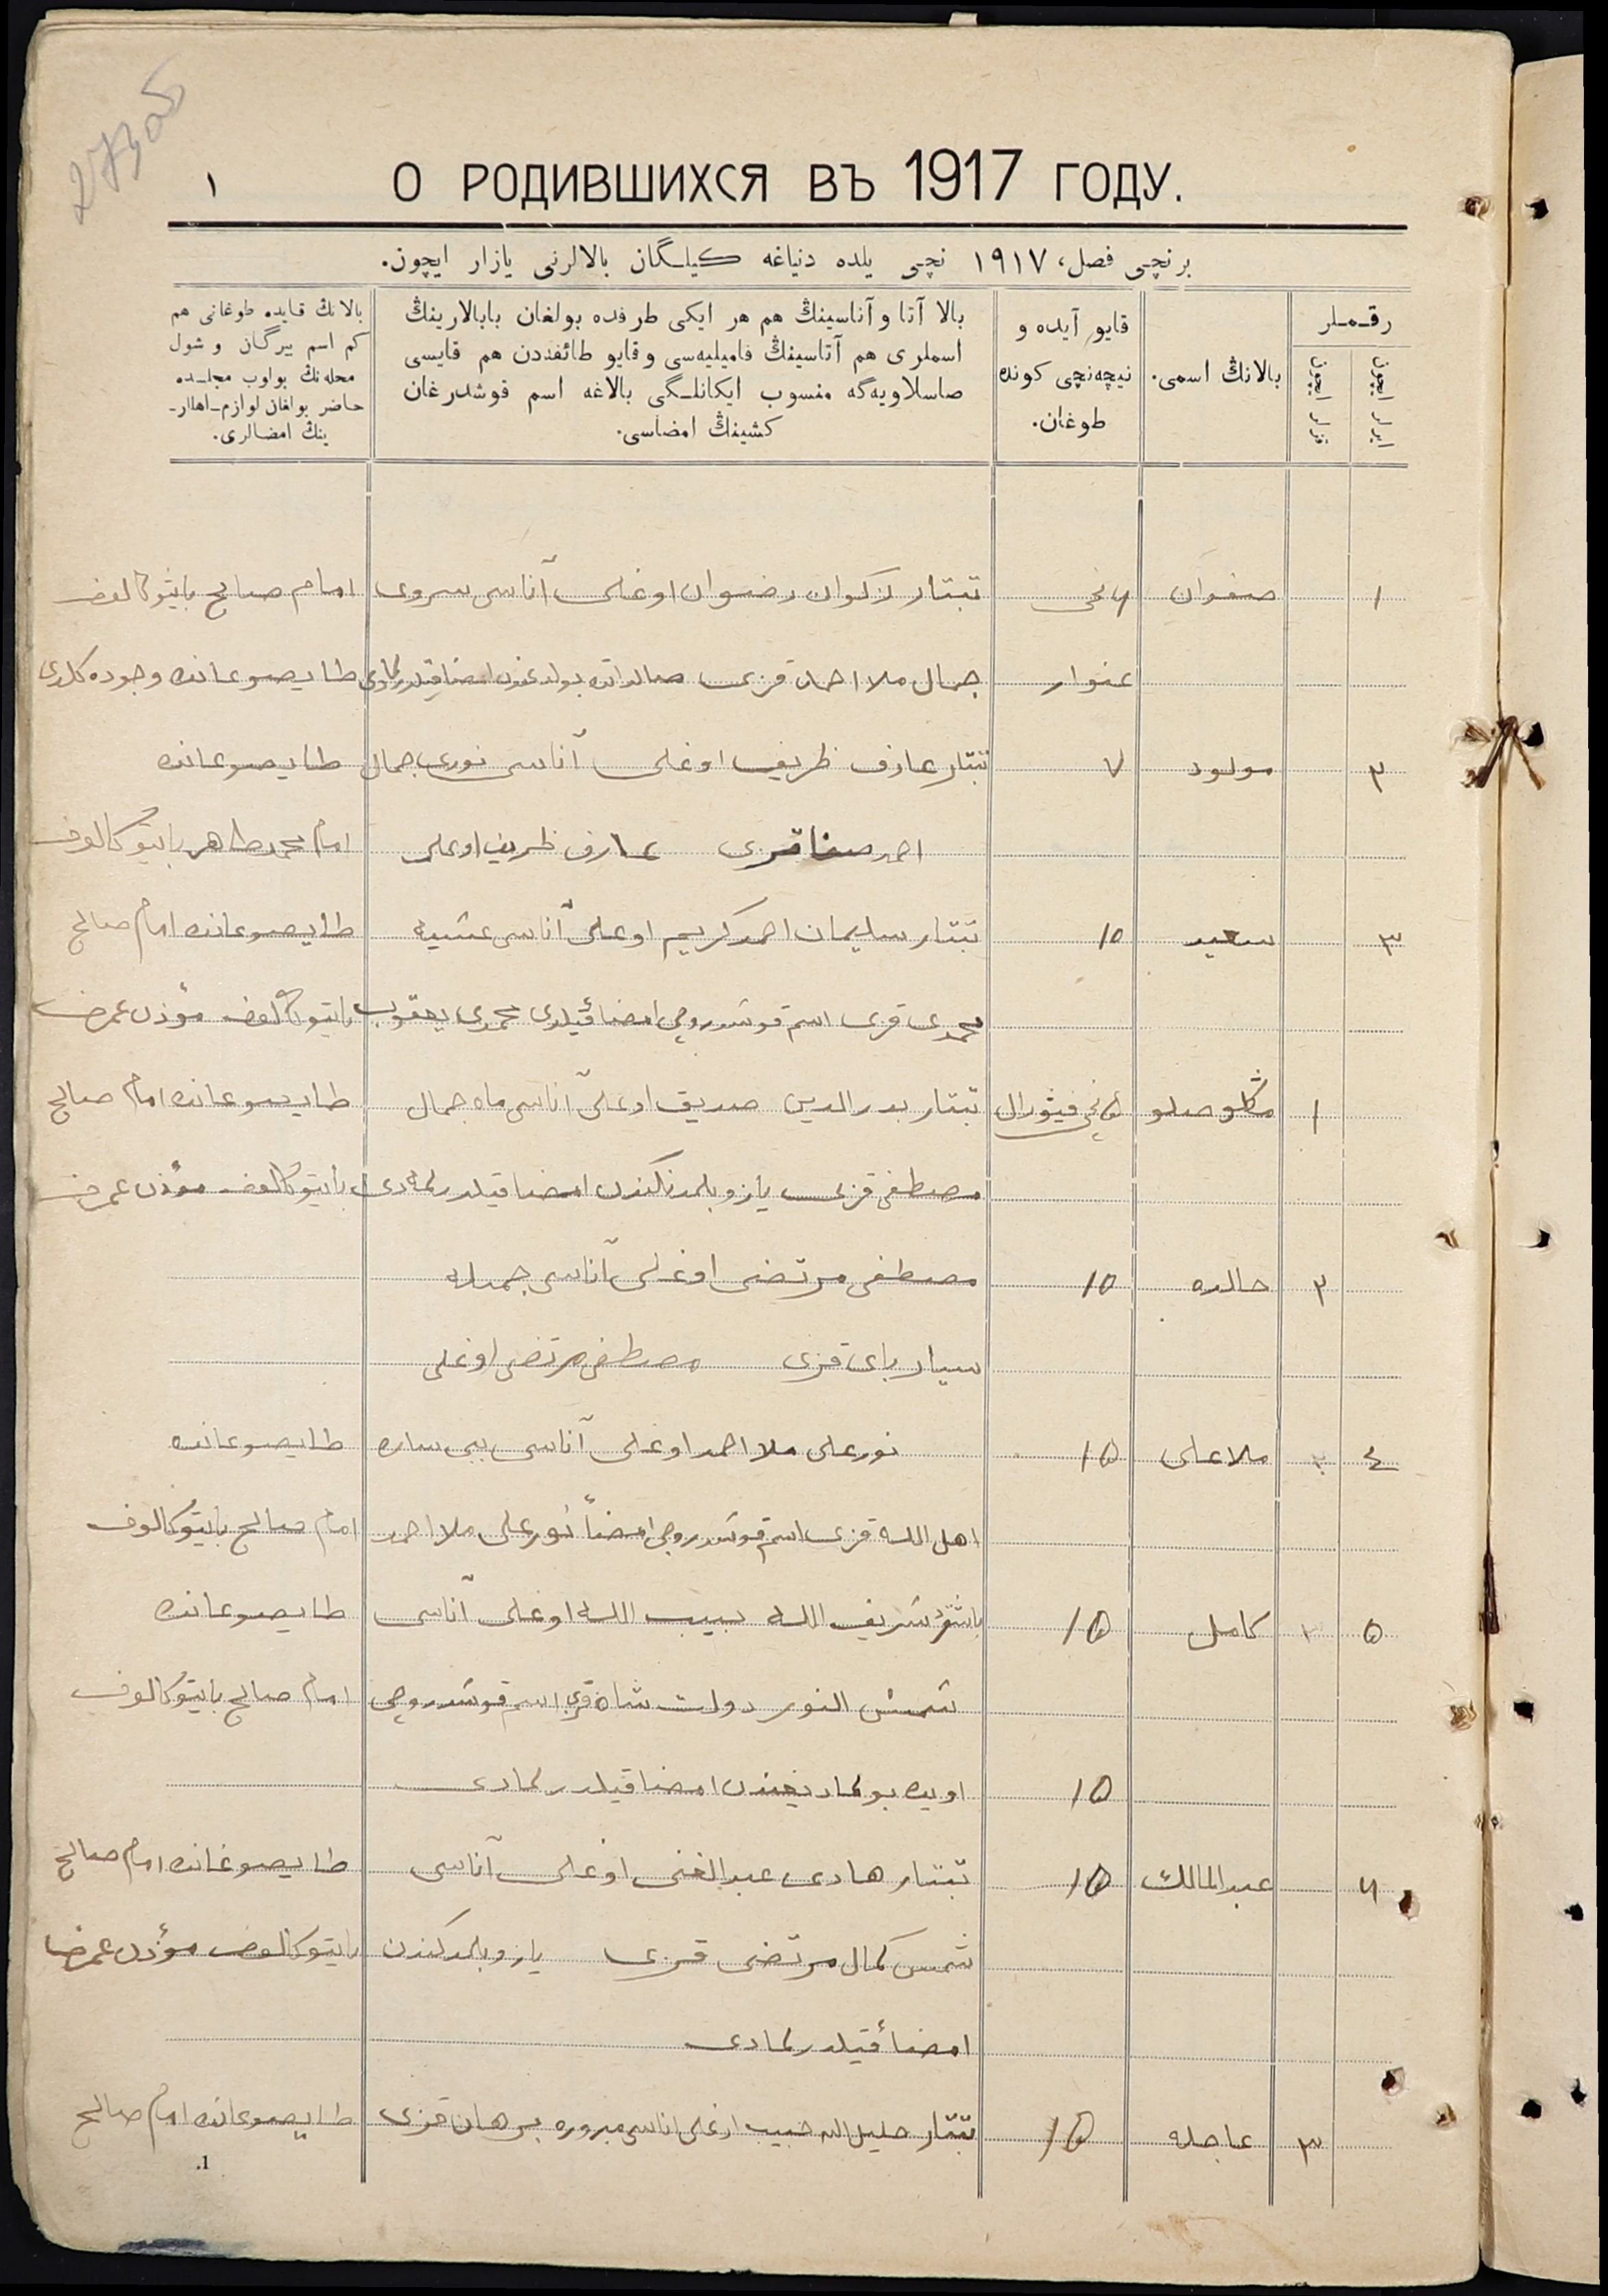 273об
О РОДИВШИХСЯ ВЪ 1917 ГОДУ.
١
برنچی فصل، ١٩١٧ نچی يلده دنياغه كيلگان بالالرنی يازار ايچون.
رقملر
ايرلر ايچون
قزلر ايچون
بالانڭ اسمی.
قايو آيده و
نيچه‌نچی كونده
طوغان.
بالا آتا و آناسينڭ هم هر ايكی طرفده بولغان بابالارينڭ
اسملری هم آتاسينڭ فاميليه‌سی و قايو طائفه‌دن هم قايسی
صاسلاويه‌گه منسوب ايكانلگی بالاغه اسم قوشدرغان
كشينڭ امضاسی.
بالانڭ قايده طوغانی هم
كم اسم بيرگان و شول
محله‌نڭ بولوب مجلسده
حاضر بولغان لوازم اهللر-
ينڭ امضالری.
١ صفوان ٦ نچی تبتار ذكوان رضوان اوغلی آناسی سروی امام صالح بايتوكالوف
غنوار جمال ملا احمد قزی امضا قيلدرلمادی طايصوغانده وجوده كلدی
٢ مولود ٧ تبتار عارف ظريف اوغلی آناسی نوری جمال طايصوغانده
احمدصفا قزی عارف ظريف اوغلی امام محمد طاهر بايتوكالوف
٣ سعيد ١٥ تبتار سليمان احمدكريم اوغلی آناسی طايصوغانده امام صالح
محمدی قزی اسم قوشدروچی امضا قيلدی محمدی يعقوب بايتوكالوف مؤذن عمرضا
١ فيورال تبتار بدرالدين صديق اوغلی آناسی ماه جمال طايصوغانده امام صالح
مصطفی قزی يازو بلمدكندن امضا قيلدرلمادی بايتوكالوف مؤذن عمرضا
٢ خالده ١٥ مصطفی مرتضی اوغلی آناسی جميله
سيار بای قزی مصطفی مرتضی اوغلی
٤ ملا علی ١٥ نورعلی ملا احمد اوغلی آناسی بی بی ساره طايصوغانده
اهل الله قزی اسم قوشدروچی امضا نورعلی ملا احمد امام صالح بايتوكالوف
٥ كامل ١٥ باشقرد شريف الله حبيب الله اوغلی آناسی طايصوغانده
شمس النور دولت شاه قزی اسم قوشدروچی امام صالح بايتوكالوف
١٥ اويده بولماديغندن امضا قيلدرلمادی
٦ عبدالمالك ١٥ تبتار هادی عبدالغنی اوغلی آناسی طايصوغانده امام صالح
شمس كمال مرتضی قزی يازو بلمدكندن بايتوكالوف مؤذن عمرضا
امضا قيلدرلمادی
٣ عاجله ١٥ تبتار خليل الله حبيب اوغلی آناسی مبروره برهان قزی طايصوغانده امام صالح
1.